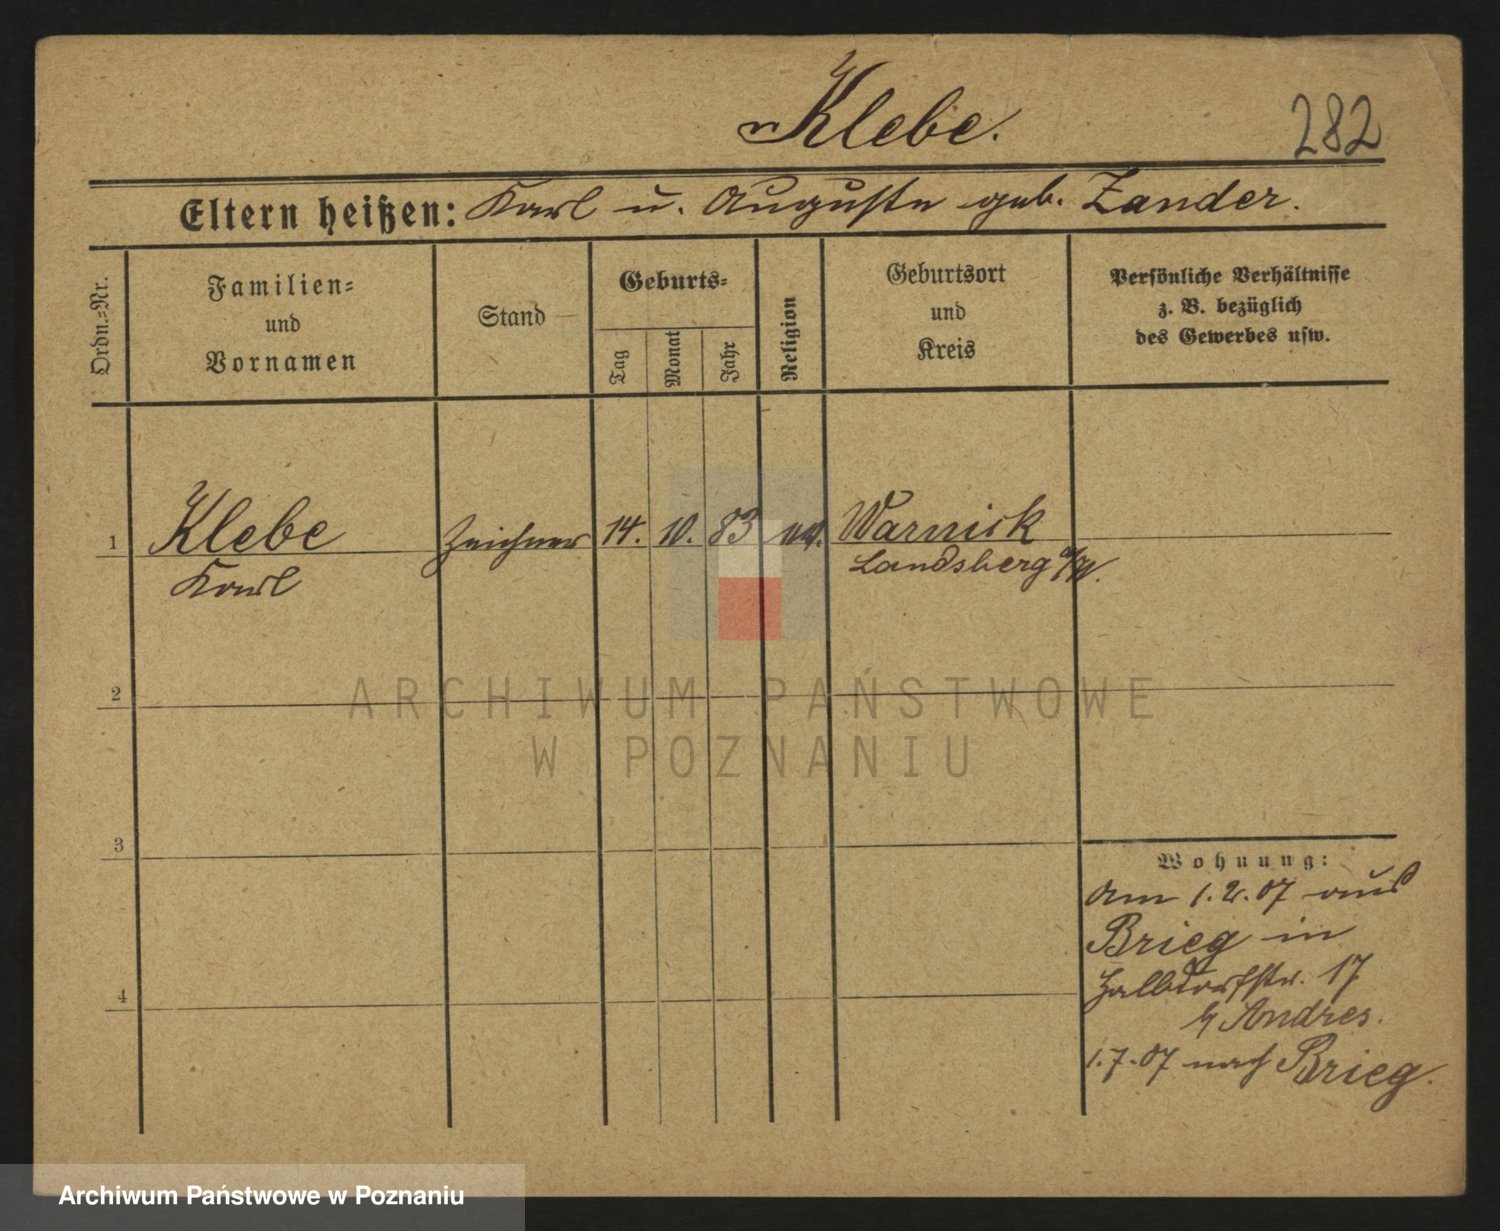 Klebe.
282
Eltern heißen: Karl u. Auguste geb. Zander.
Ordn.=Nr.
Familien=
und
Vornamen
Stand
Geburts=
Tag
Monat
Jahr
Religion
Geburtsort
und
Kreis
Persönliche Verhältnisse
z. B. bezüglich
des Gewerbes usw.
1
Klebe
Karl
Zeichner
14.
10.
83
ev.
Warnick
Landsberg a/W.
2
3
4
Wohnung:
Am 1.2.07 aus
Brieg in
Halbdorfstr. 17
b/ Andres.
1.7.07 nach Brieg.
ARCHIWUM PAŃSTWOWE
W POZNANIU
Archiwum Państwowe w Poznaniu